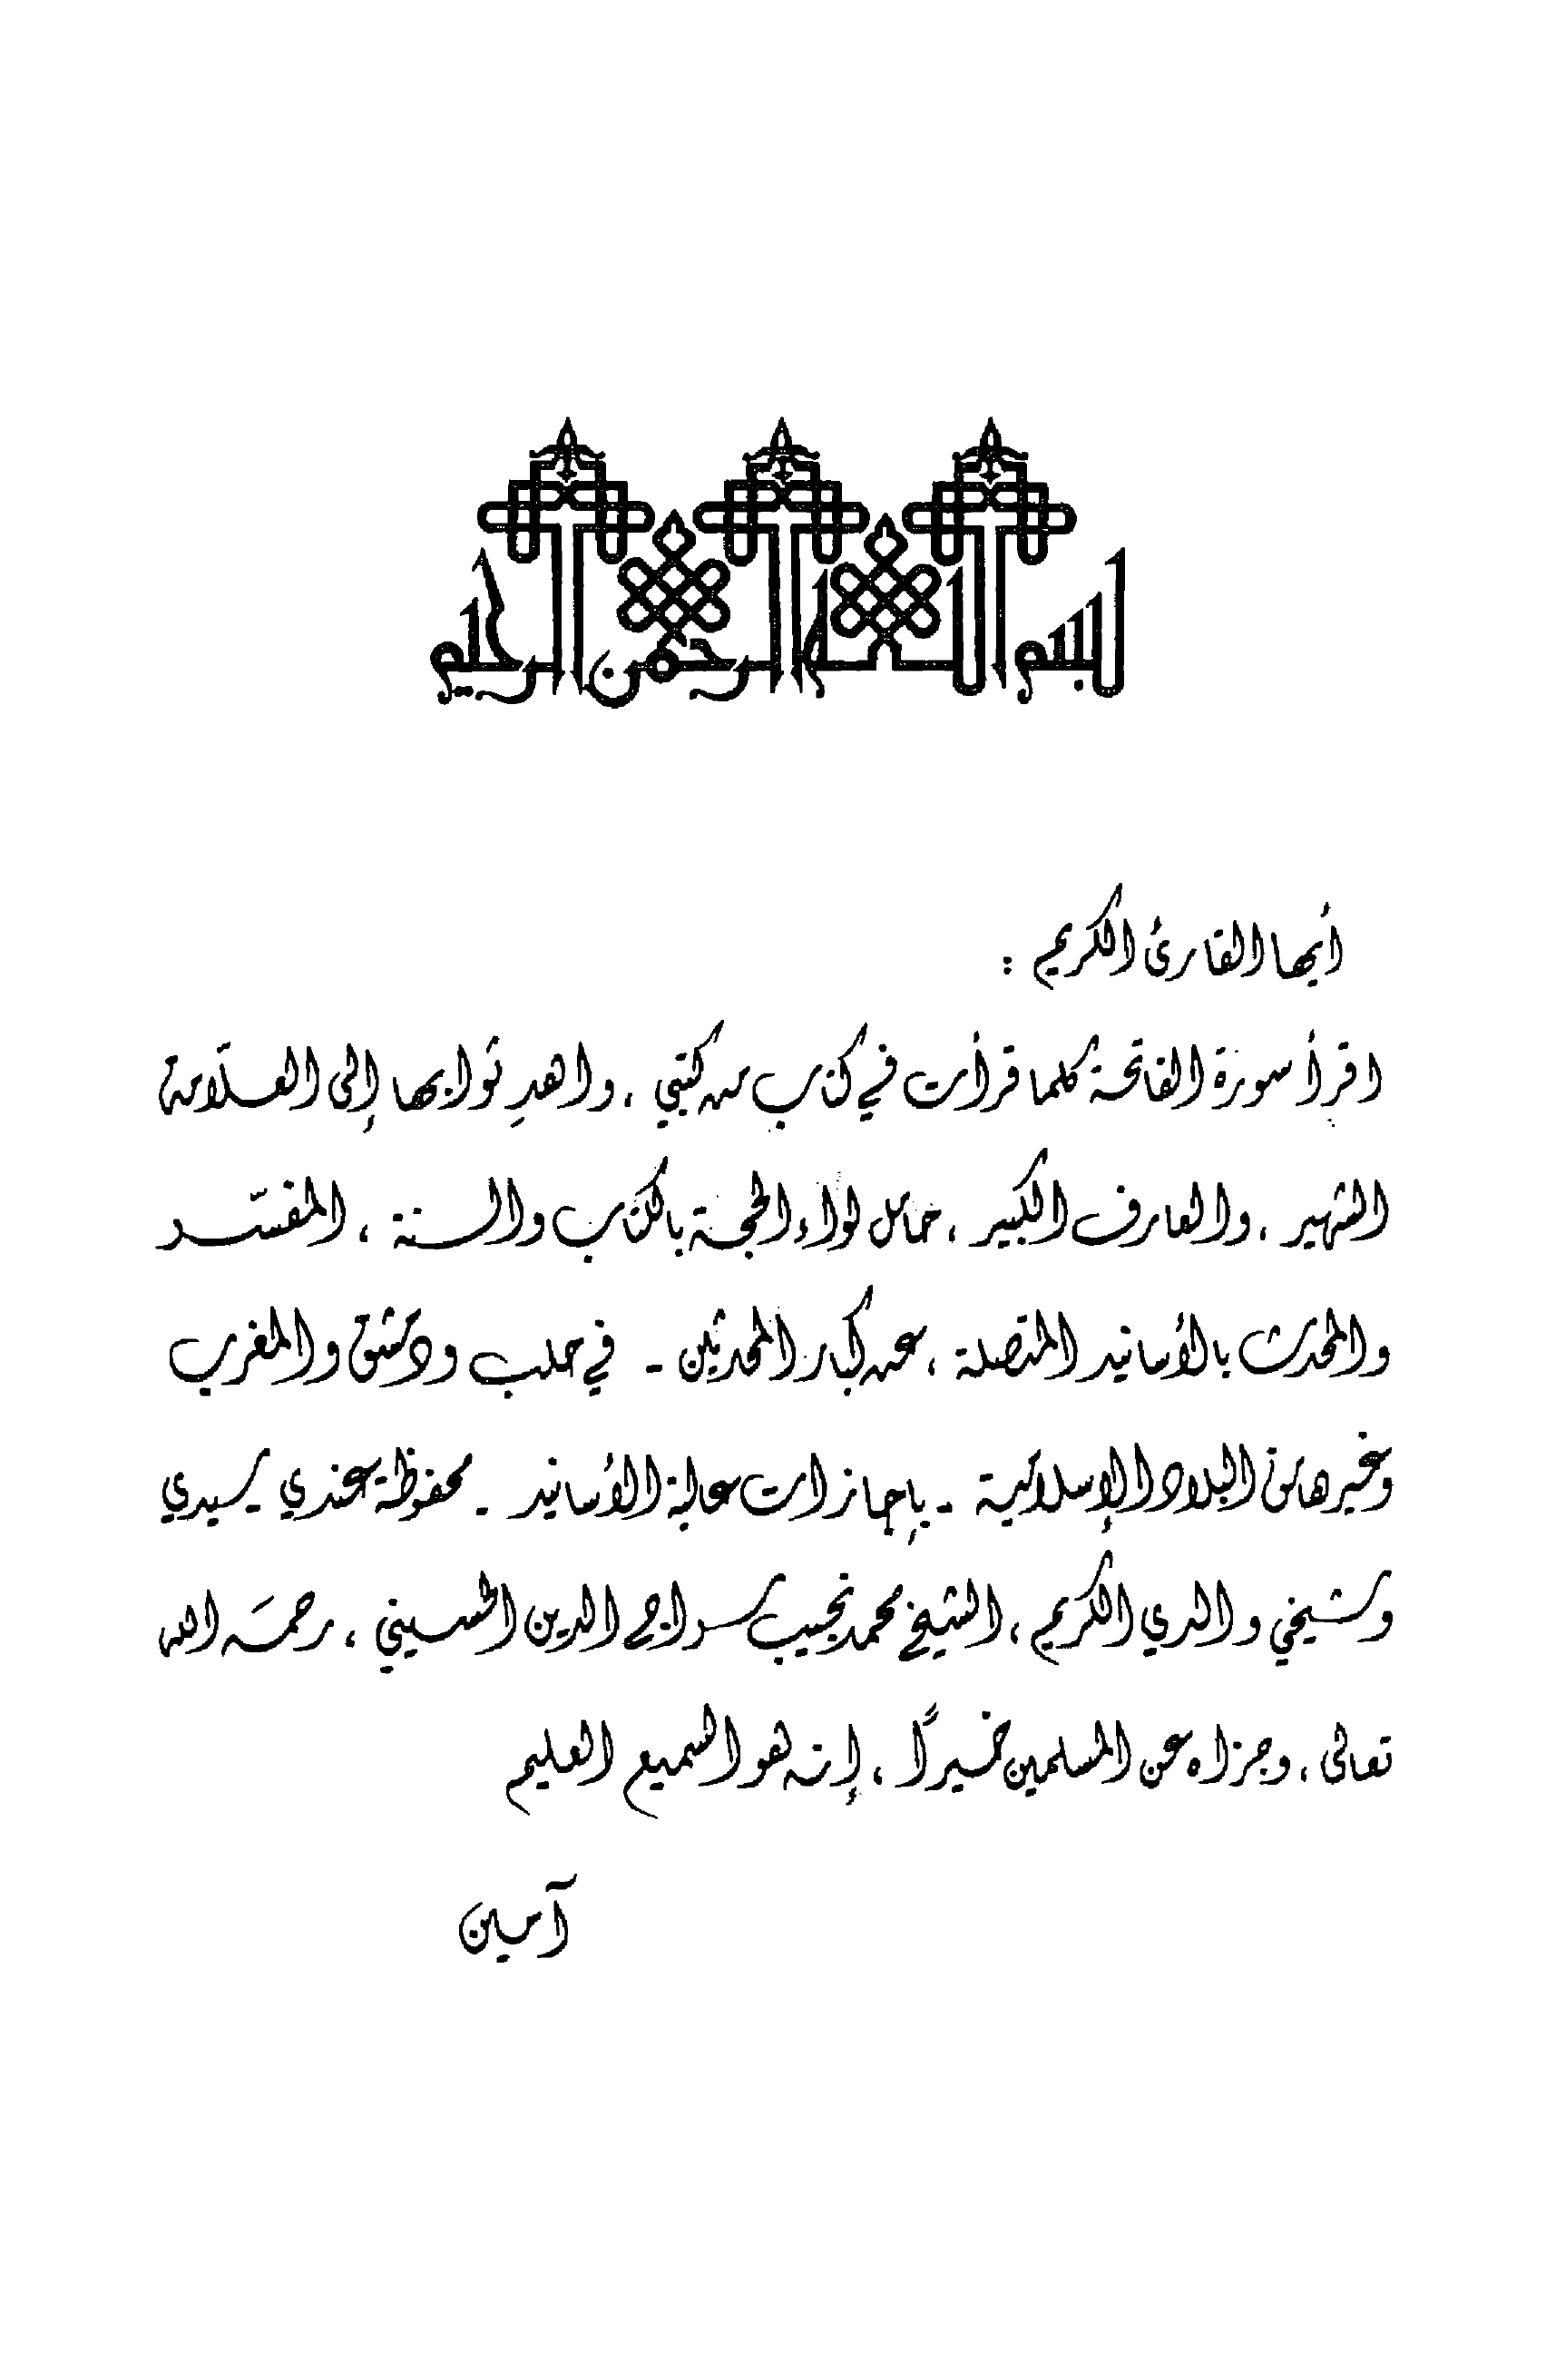 بسم الله الرحمن الرحيم
أيها القارئ الكريم :
اقرأ سورة الفاتحة كلما قرأت في كتاب من كتبي ، واهدِ ثوابها إلى العلّامة
الشهير ، والعارف الكبير ، حامل لواء الحجة بالكتاب والسنة ، المفسّر
والمحدث بالأسانيد المتصلة ، عن كبار المحدثين - في حلب ودمشق والمغرب
وغيرها من البلاد الإسلامية - بإجازات عالية الأسانيد - محفوظة عندي سيدي
وشيخي والدي الكريم ، الشيخ محمد نجيب سراج الدين الحسيني ، رحمَه الله
تعالى ، وجزاه عن المسلمين خيراً ، إنه هو السميع العليم
آمين